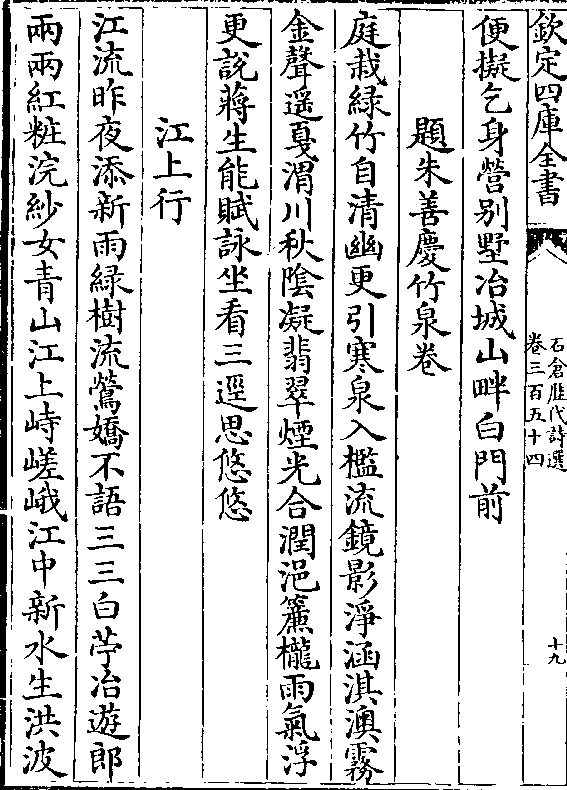 欽定四庫全書
石倉歷代詩選
卷三百五十四
十九
便擬乞身營别墅冶城山畔白門前
題朱善慶竹泉卷
庭栽緑竹自清幽更引寒泉入檻流鏡影淨涵淇澳霧
金聲遥戛渭川秋隂凝翡翠煙光合潤浥簾櫳雨氣浮
更說蔣生能賦詠坐看三逕思悠悠
江上行
江流昨夜添新雨緑樹流鶯嬌不語三三白苧冶遊郎
兩兩紅粧浣紗女青山江上峙嵯峨江中新水生洪波